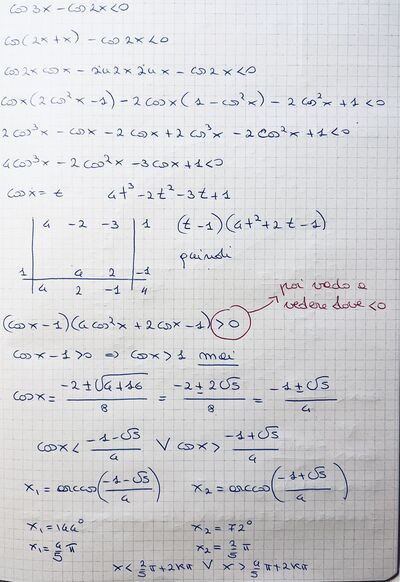 cos3x - cos2x < 0
cos(2x+x) - cos2x < 0
cos2x cosx - sin2x sinx - cos2x < 0
cosx(2cos²x - 1) - 2cosx(1 - cos²x) - 2cos²x + 1 < 0
2cos³x - cosx - 2cosx + 2cos³x - 2cos²x + 1 < 0
4cos³x - 2cos²x - 3cosx + 1 < 0
cosx = t 4t³ - 2t² - 3t + 1
4 -2 -3 1 (t-1)(4t² + 2t - 1)
quindi
1 4 2 -1
4 2 -1 4
poi vado a
vedere dove < 0
(cosx - 1)(4cos²x + 2cosx - 1) > 0
cosx - 1 > 0 ⇒ cosx > 1 mai
cosx = (-2 ± √(4+16))/8 = (-2 ± 2√5)/8 = (-1 ± √5)/4
cosx < (-1-√5)/4 ∨ cosx > (-1+√5)/4
x₁ = arccos((-1-√5)/4) x₂ = arccos((-1+√5)/4)
x₁ = 144° x₂ = 72°
x₁ = 4/5 π x₂ = 2/5 π
x < 2/5 π + 2kπ ∨ x > 4/5 π + 2kπ